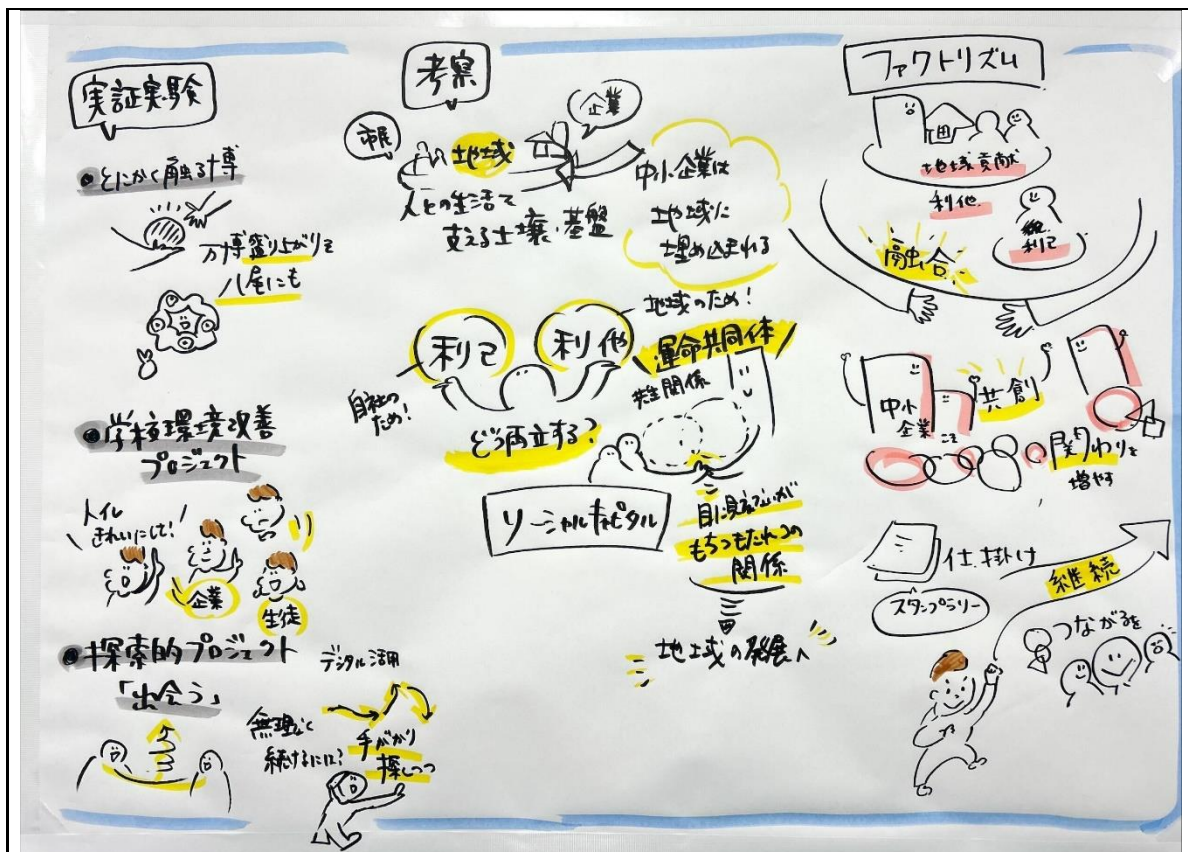 実証実験
●とにかく触る博
万博盛り上がりを
八尾にも
●学校環境改善
プロジェクト
トイレ
きれいにして!
企業
生徒
●探索的プロジェクト
「出会う」
デジタル活用
無理なく
続けるには?
手がかり
探しつつ
考察
市民
地域
企業
人々の生活て
支える土壌・基盤
中小企業は
地域に
埋め込まれる
利己
利他
地域のため!
自社の
ため!
どう両立する?
運命共同体
共生関係
ソーシャルキャピタル
目に見えないが
もちつもたれつの
関係
地域の発展へ
ファクトリズム
地域貢献
利他
利己
融合
中小
企業
こそ
共創
関わりを
増やす
仕掛け
スタンプラリー
継続
つながるを